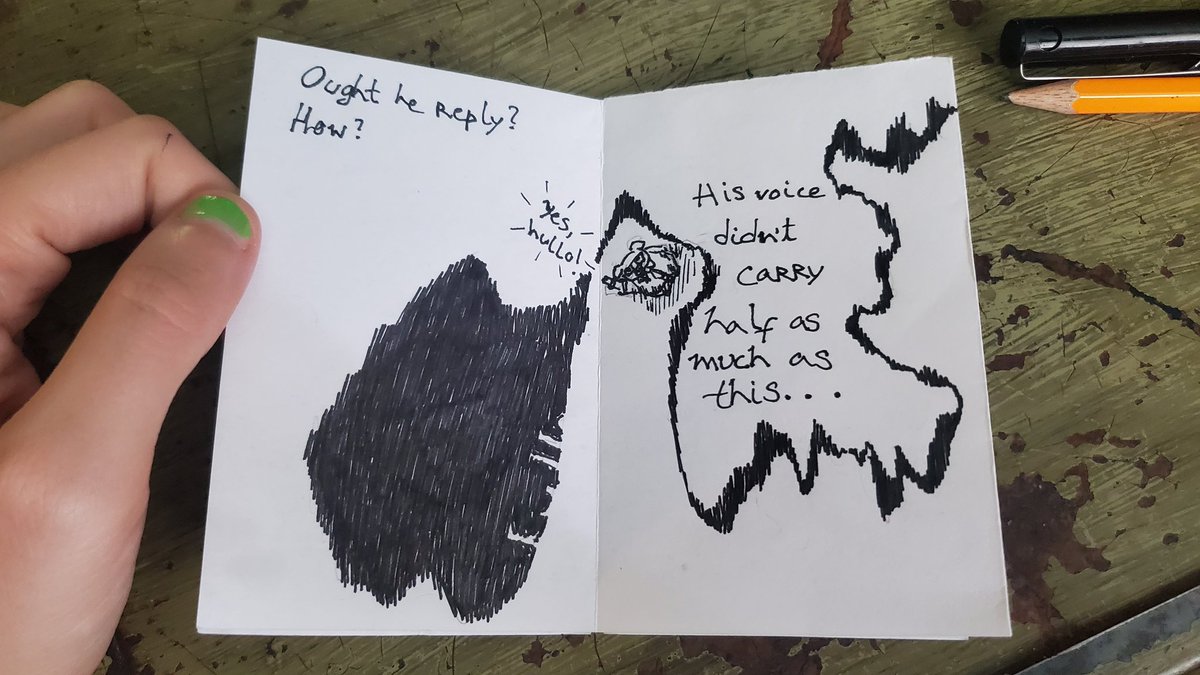 Ought he reply?
How?
Yes,
hullo!
His voice
didn't
carry
half as
much as
this...